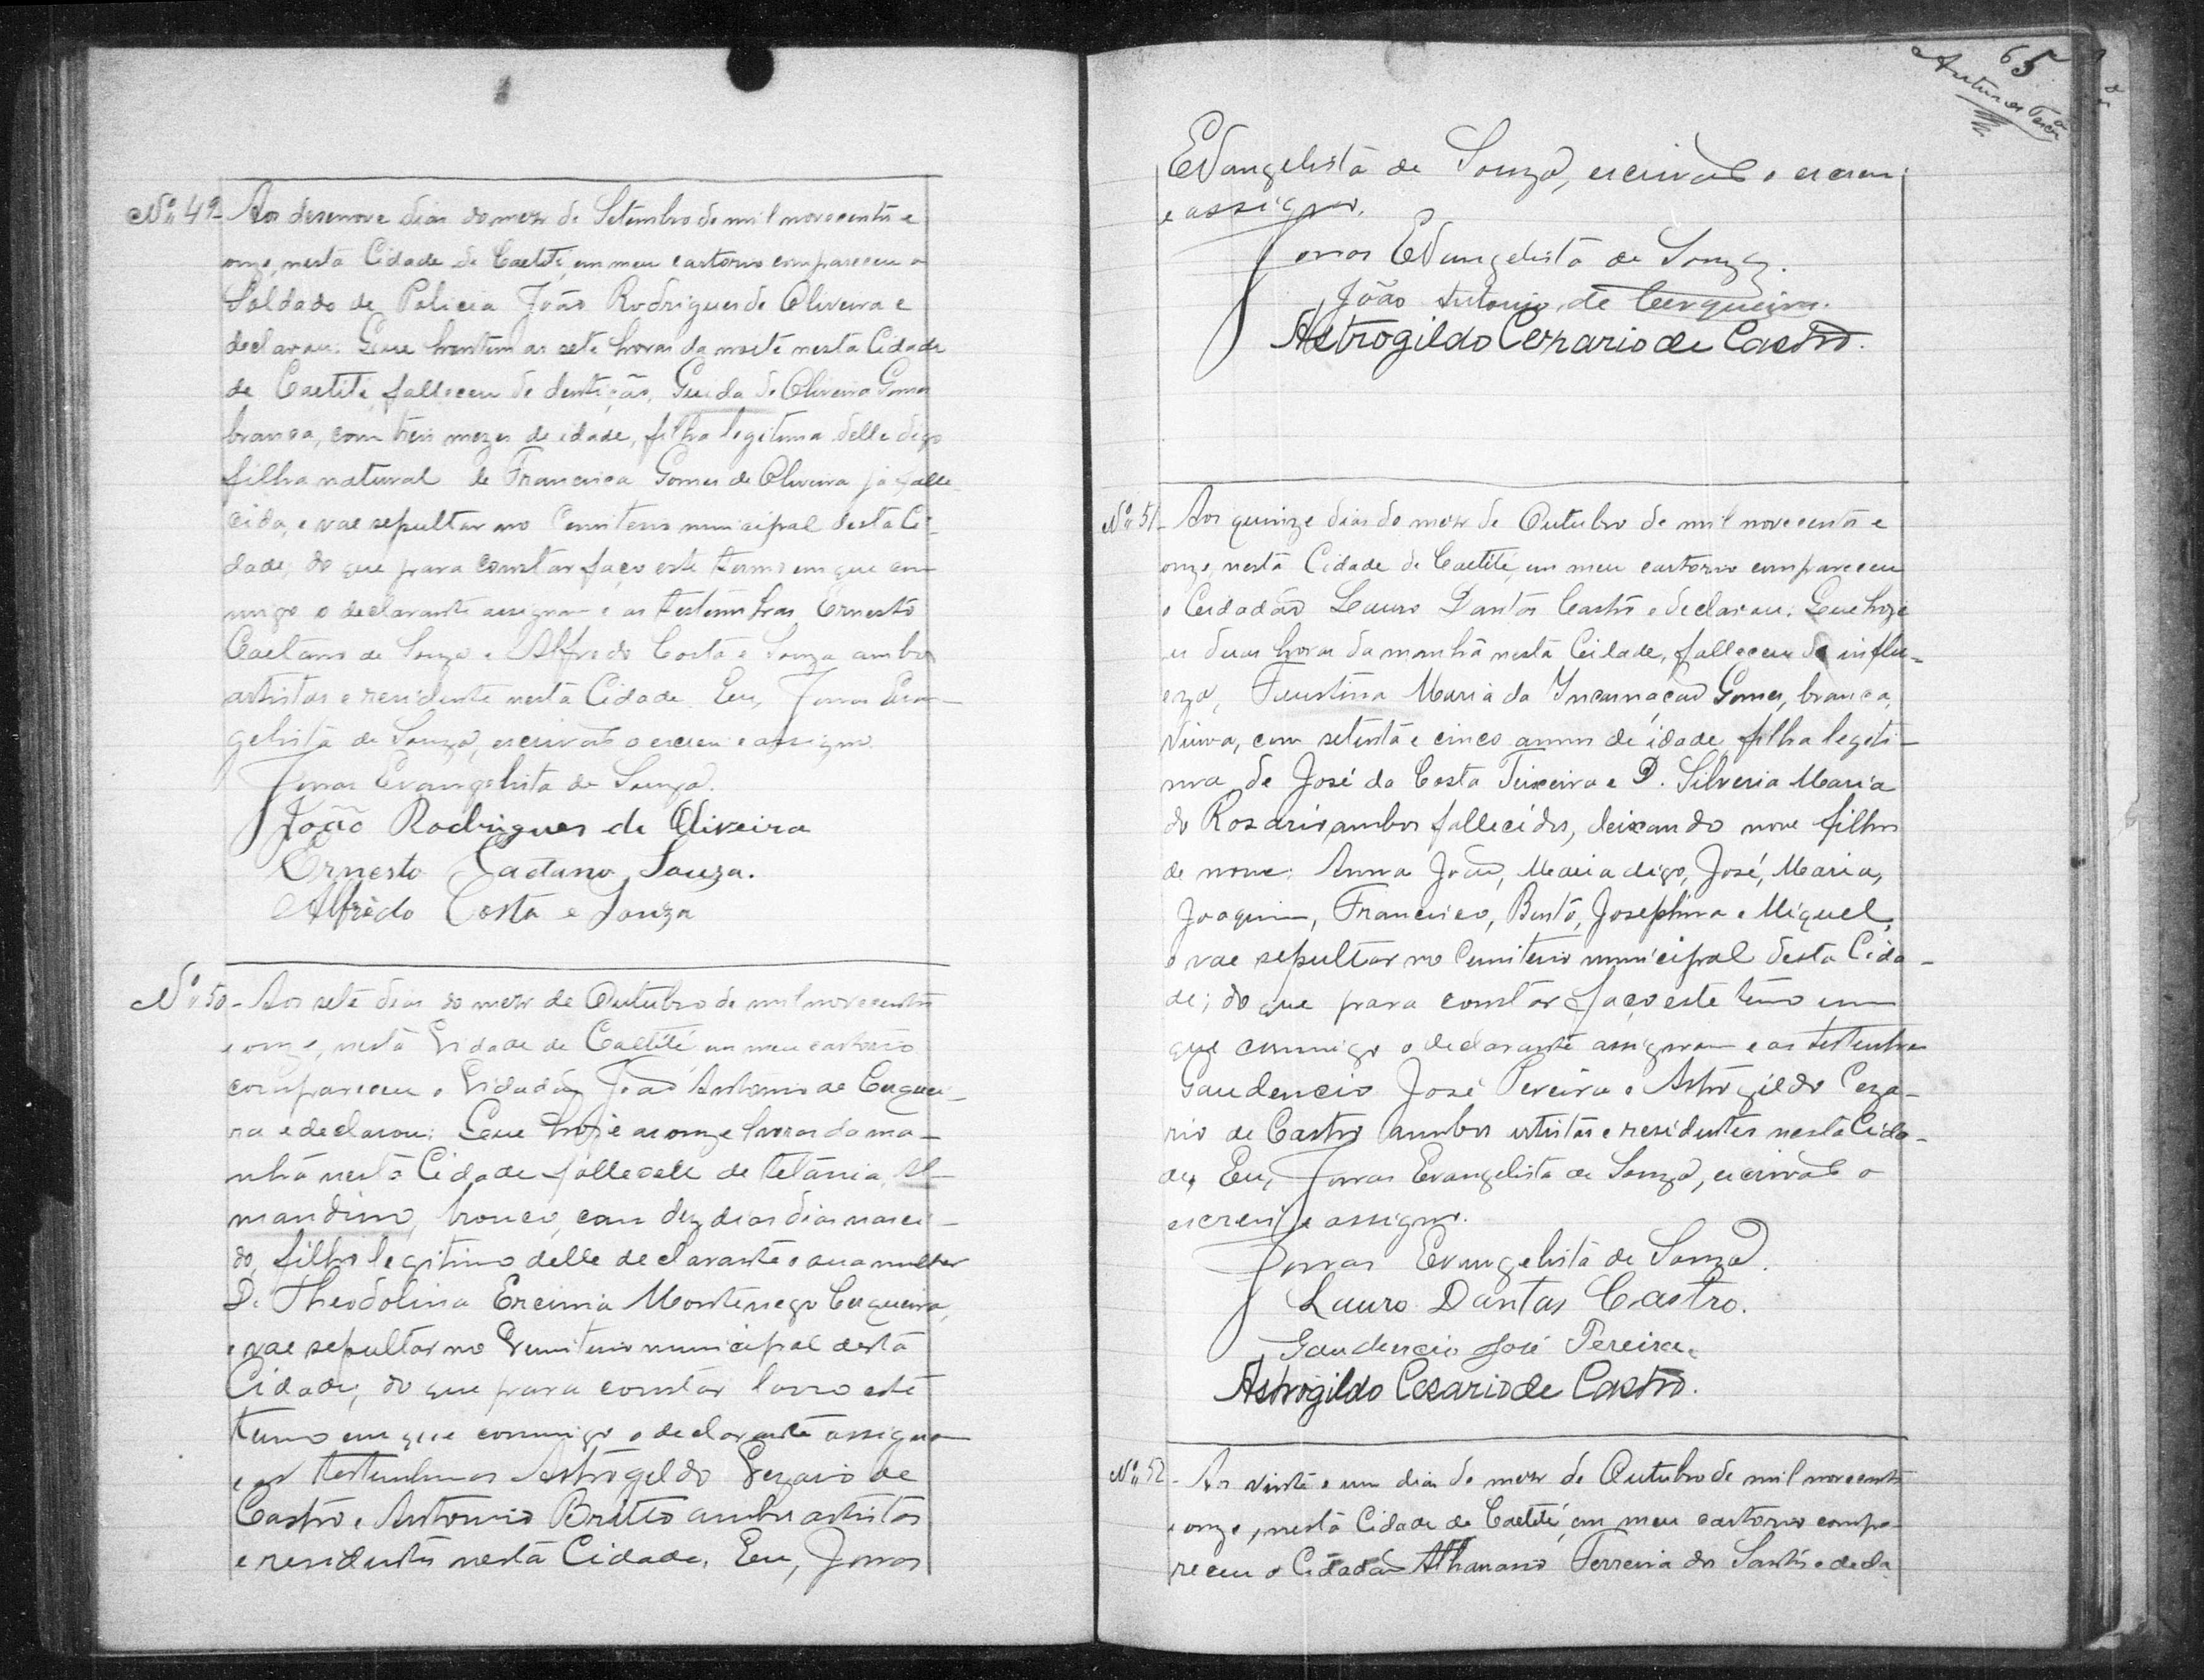 Nº 49- Aos desenove dias do mez de Setembro de mil novecentos e
onze, nesta Cidade de Caetité, em meu cartorio compareceu o
Soldado de Policia João Rodrigues de Oliveira e
declarou: Que hontem as sete horas da noite nesta Cidade
de Caetité, falleceu de dentição, Guida de Oliveira Gomes
branca, com tres mezes de idade, filha legitima delle digo
filha natural de Francisca Gomes de Oliveira já falle-
cida, e vae sepultar no Cemiterio municipal desta Ci-
dade, do que para constar faço este termo em que com
migo o declarante assignam e as testemunhas Ernesto
Caetano de Souza e Alfredo Costa e Souza ambos
artistas e residente nesta Cidade. Eu, Jonas Evan-
gelista de Souza, escrivão o escrevi e assigno.
Jonas Evangelista de Souza.
João Rodrigues de Oliveira
Ernesto Caetano Souza.
Alfrêdo Costa e Souza
Nº 50- Aos sete dias do mez de Outubro de mil novecentos
e onze, nesta Cidade de Caetité, em meu cartorio
compareceu o Cidadão João Antonio de Cerquei-
ra e declarou: Que hoje as onze horas da ma-
nhã nesta Cidade falleceu de tetania, Al-
mandino, branco, com dez dias dias nasci-
do, filho legitimo delle declarante e sua mulher
D. Theodolina Ercinia Montenego Cerqueira,
e vae sepultar no Cemiterio municipal desta
Cidade, do que para constar lavro este
termo em que commigo o declarante assignam
e as testemunhas Astrogildo Cezario de
Castro e Antonio Britto ambos artistas
e residentes nesta Cidade. Eu, Jonas
65
Evangelista de Souza, escrivão o escrevi
e assigno.
Jonas Evangelista de Souza.
João Antonio de Cerqueira.
Astrogildo Cezario de Castro.
Nº 51- Aos quinze dias do mez de Outubro de mil novecentos e
onze, nesta Cidade de Caetité, em meu cartorio compareceu
o Cidadão Lauro Dantas Castro e declarou: Que hoje
as duas horas da manhã nesta Cidade, falleceu de influ-
enza, Faustina Maria da Incarnação Gomes, branca,
viuva, com setenta e cinco annos de idade, filha legiti-
ma de José da Costa Teixeira e D. Silveria Maria
do Rosario, ambos fallecidos, deixando nove filhos
de nome: Anna João, Maria digo, José, Maria,
Joaquim, Francisco, Bento, Josephina e Miguel,
e vae sepultar no Cemiterio municipal desta Cida-
de; do que para constar faço este termo em
que commigo o declarante assignam e as testemunhas
Gaudencio José Pereira e Astrogildo Ceza-
rio de Castro ambos artistas e residentes nesta Cida-
de, Eu, Jonas Evangelista de Souza, escrivão o
escrevi e assigno.
Jonas Evangelista de Souza.
Lauro Dantas Castro.
Gaudencio José Pereira.
Astrogildo Cesario de Castro.
Nº 52- Aos vinte e um dias do mez de Outubro de mil novecentos
e onze, nesta Cidade de Caetité, em meu cartorio compa-
receu o Cidadão Athanasio Ferreira dos Santos e decla